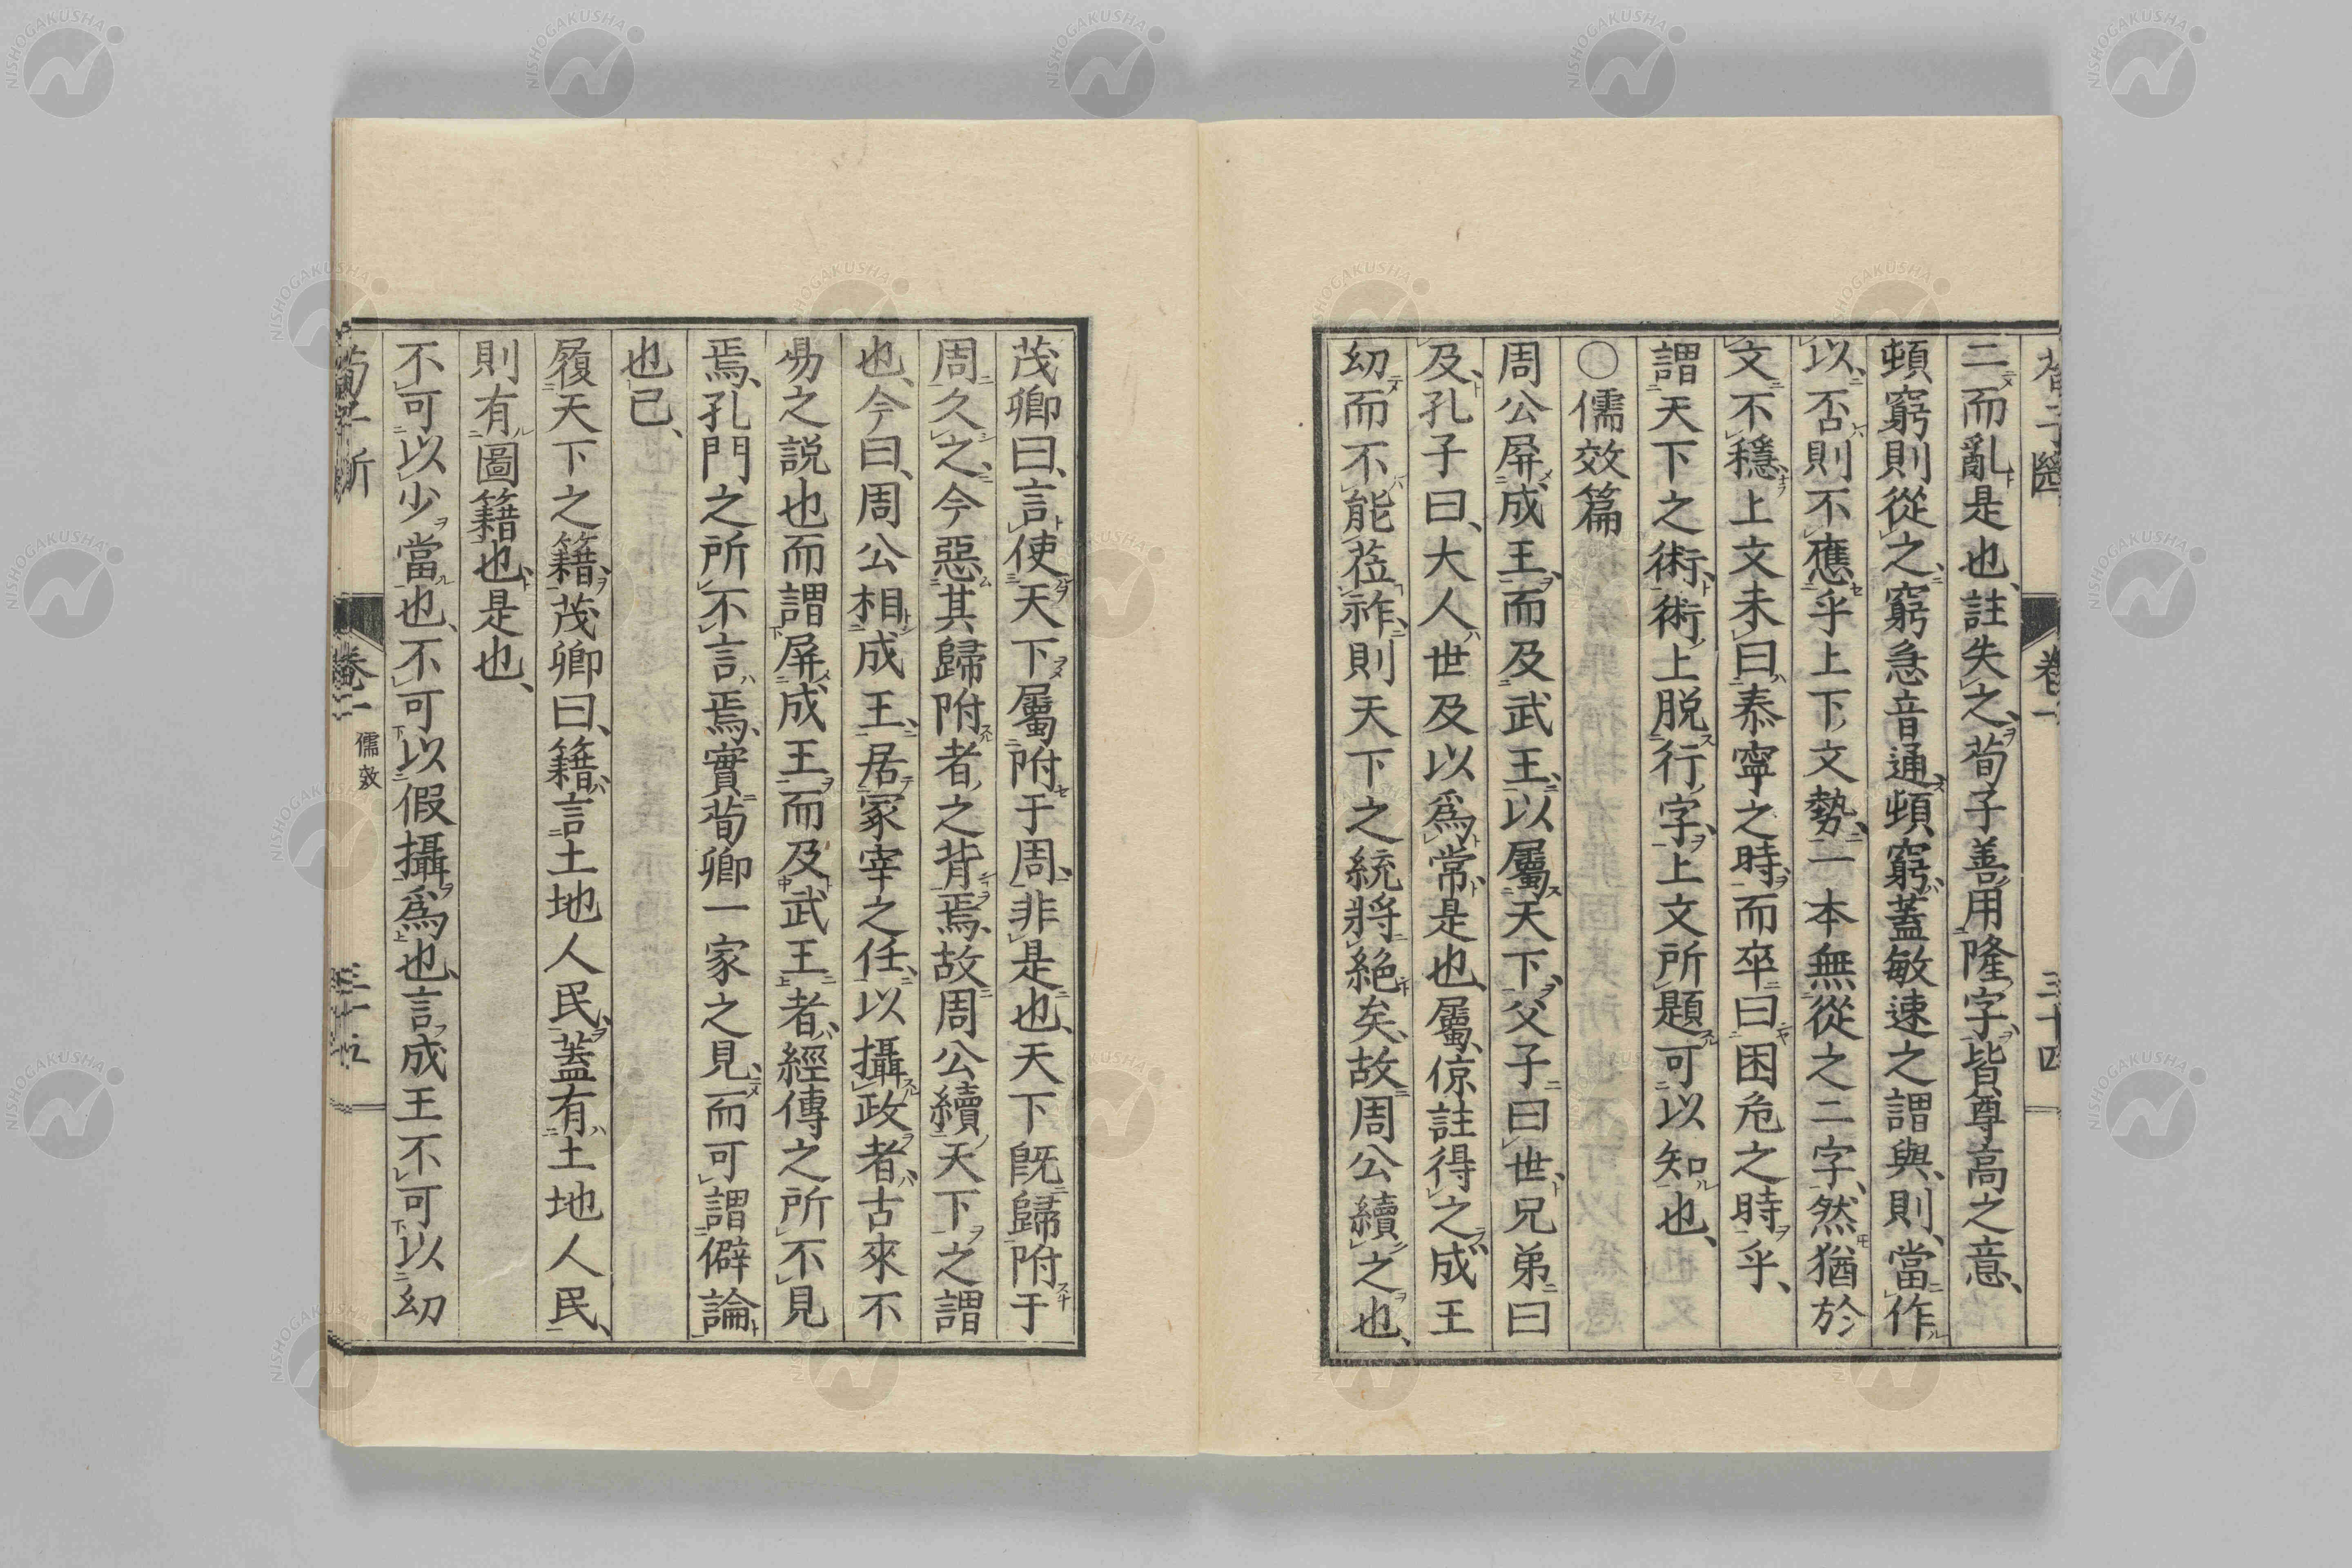 二而亂是也、註失之、荀子善用隆字、皆尊高之意、
頓窮則從之、窮急音通、頓窮、蓋敏速之謂與、則當作
以、否則不應乎上下文勢、一本無從之二字、然猶於
文不穩、上文未曰泰寧之時、而卒曰困危之時乎、
謂天下之術、術上脱行字、上文所題可以知也、
〇儒效篇
周公屏成王、而及武王、以屬天下、父子曰世、兄弟曰
及、孔子曰、大人世及以爲常、是也、屬、倞註得之、成王
幼而不能莅祚、則天下之統將絶矣、故周公續之也、
茂卿曰、言使天下屬附于周、非是也、天下既歸附于
周久之、今惡其歸附者之背焉、故周公續天下之謂
也、今曰、周公相成王、居冢宰之任、以攝政者、古來不
易之説也而謂屏成王而及武王者、經傳之所不見
焉、孔門之所不言焉、實荀卿一家之見、而可謂僻論
也已、
履天下之籍、茂卿曰、籍言土地人民、蓋有土地人民、
則有圖籍也、是也、
不可以少當也、不可以假攝爲也、言成王不可以幼
卷二 儒效